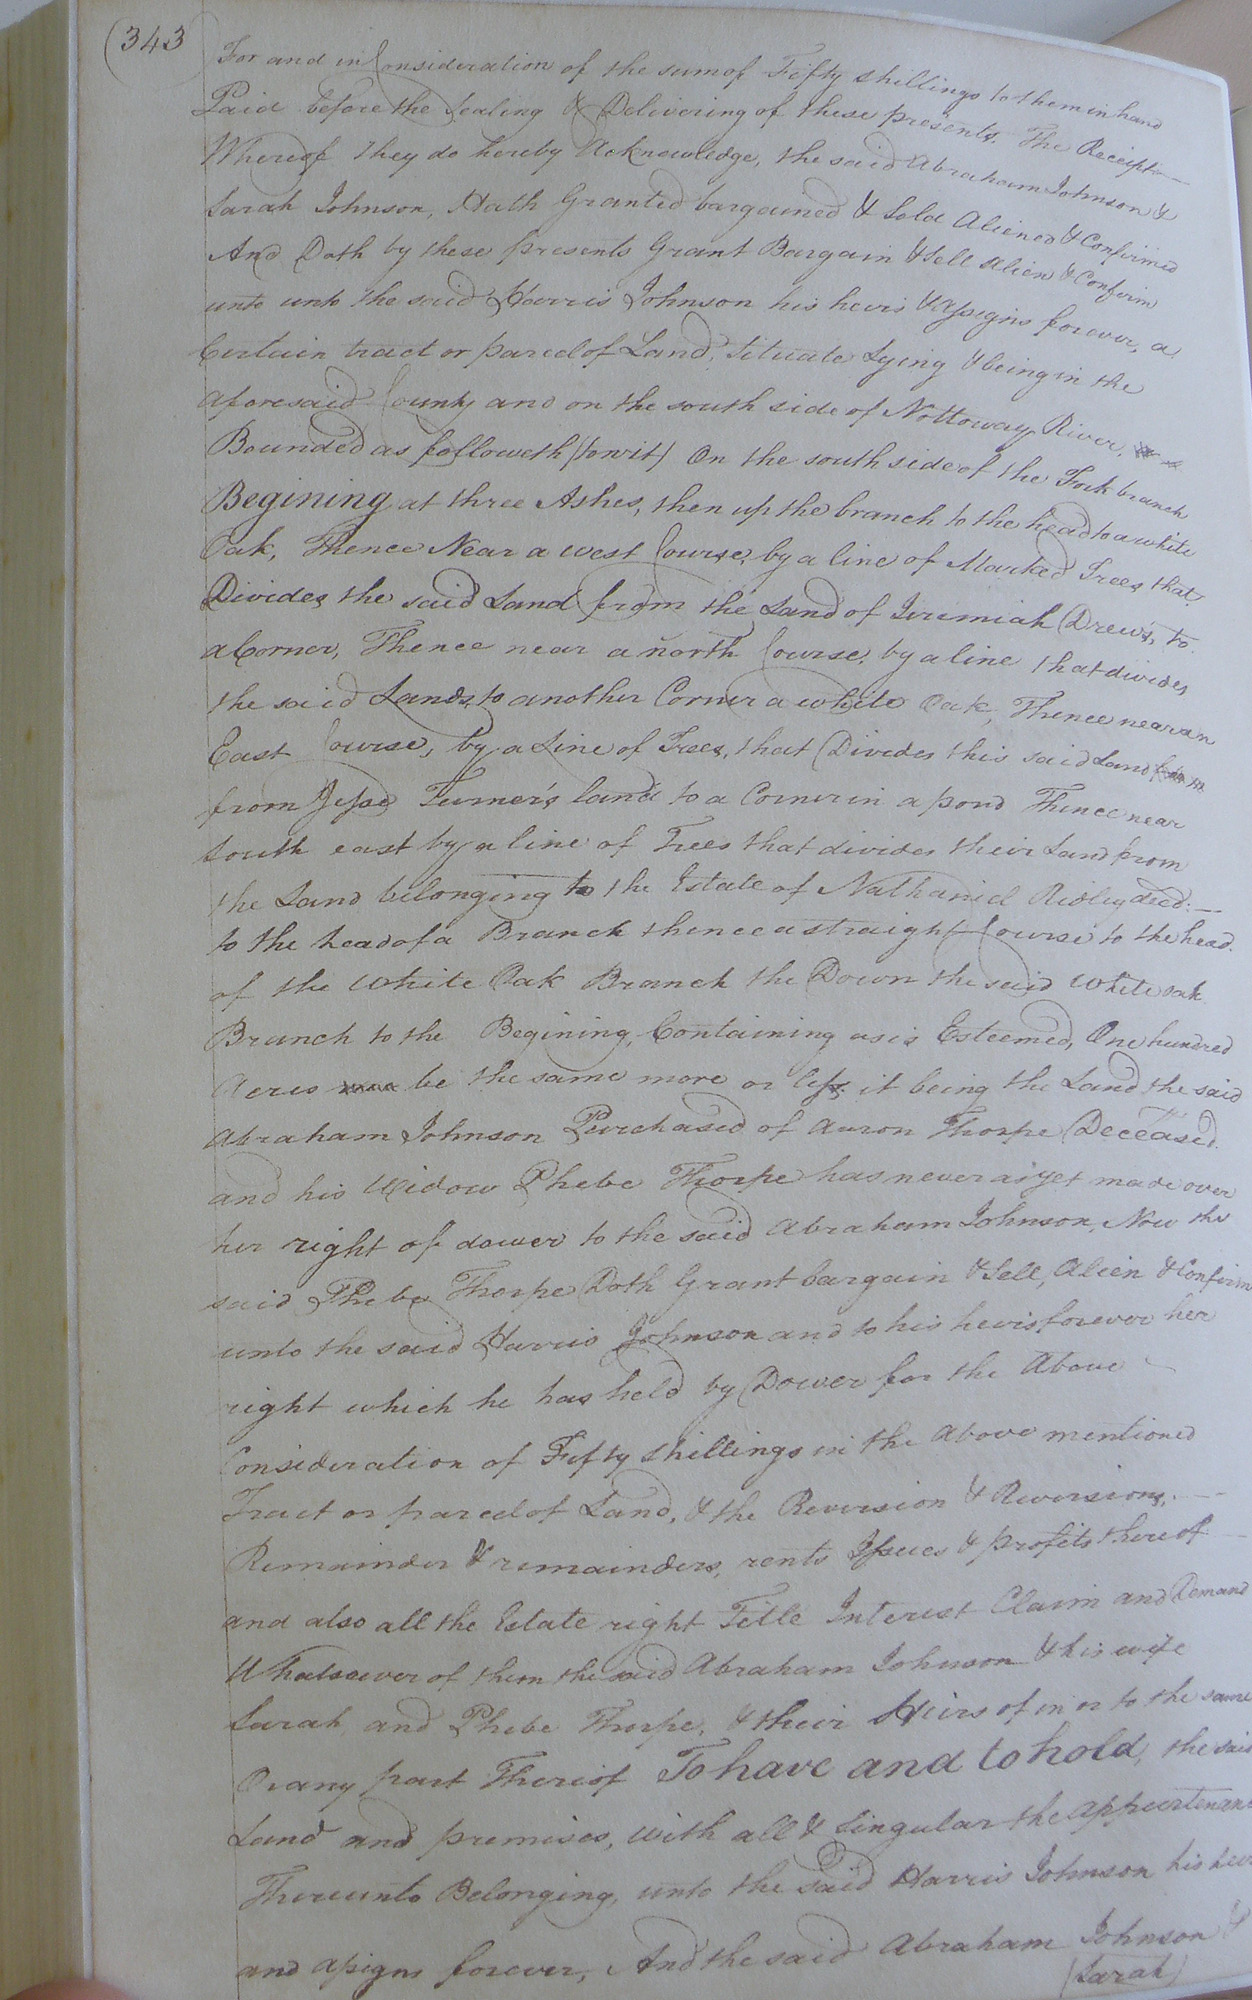 (343
For and in Consideration of the sum of Fifty shillings to them in hand
Paid before the Sealing & Delivering of these presents. The Receipt
Whereof they do hereby Acknowledge, the said Abraham Johnson &
Sarah Johnson, Hath Granted bargained & Sold Aliened & Confirmed
And Doth by these presents Grant Bargain & Sell Alien & Confirm
unto unto the said Harris Johnson his heirs & Assigns forever, a
Certain tract or parcel of Land, Situate Lying & being in the
aforesaid County and on the south side of Nottoway River,
Bounded as followeth (towit) On the south side of the Fork branch
Begining at three Ashes, then up the branch to the head to a white
Oak, Thence Near a west Course, by a line of Marked Trees, that
Divides the said Land from the Land of Jeremiah Drews, to
a Corner, Thence near a north Course, by a line that divides
the said Lands, to another Corner a white Oak, Thence near an
East Course, by a Line of Trees, that Divides this said Land
from Jesse Turner's land to a Corner in a pond Thence near
South east by a line of Trees that divides their Land from
the Land belonging to the Estate of Nathaniel Ridley decd:
to the head of a Branch thence a straight Course to the head
of the White Oak Branch the Down the said White oak
Branch to the Begining, Containing as is Esteemed, One hundred
Acres be the same more or less. it being the Land the said
Abraham Johnson Purchased of Aaron Thorpe Deceased.
and his Widow Phebe Thorpe has never as yet made over
her right of dower to the said Abraham Johnson, Now the
said Phebe Thorpe Doth Grant bargain & Sell, Alien & Confirm
unto the said Harris Johnson and to his heirs forever her
right which he has held by Dower for the Above
Consideration of Fifty Shillings in the above mentioned
Tract or parcel of Land, & the Reversion & Reversions,
Remainder & remainders, rents Issues & profits thereof
and also all the Estate right Title Interest Claim and Demand
Whatsoever of them the said Abraham Johnson & his wife
Sarah and Phebe Thorpe, & their Heirs of in or to the same
Or any part Thereof To have and to hold, the said
Land and premises, with all & Singular the appurtenanc
Thereunto Belonging, unto the said Harris Johnson his heir
and assigns forever, And the said Abraham Johnson &
(Sarah)